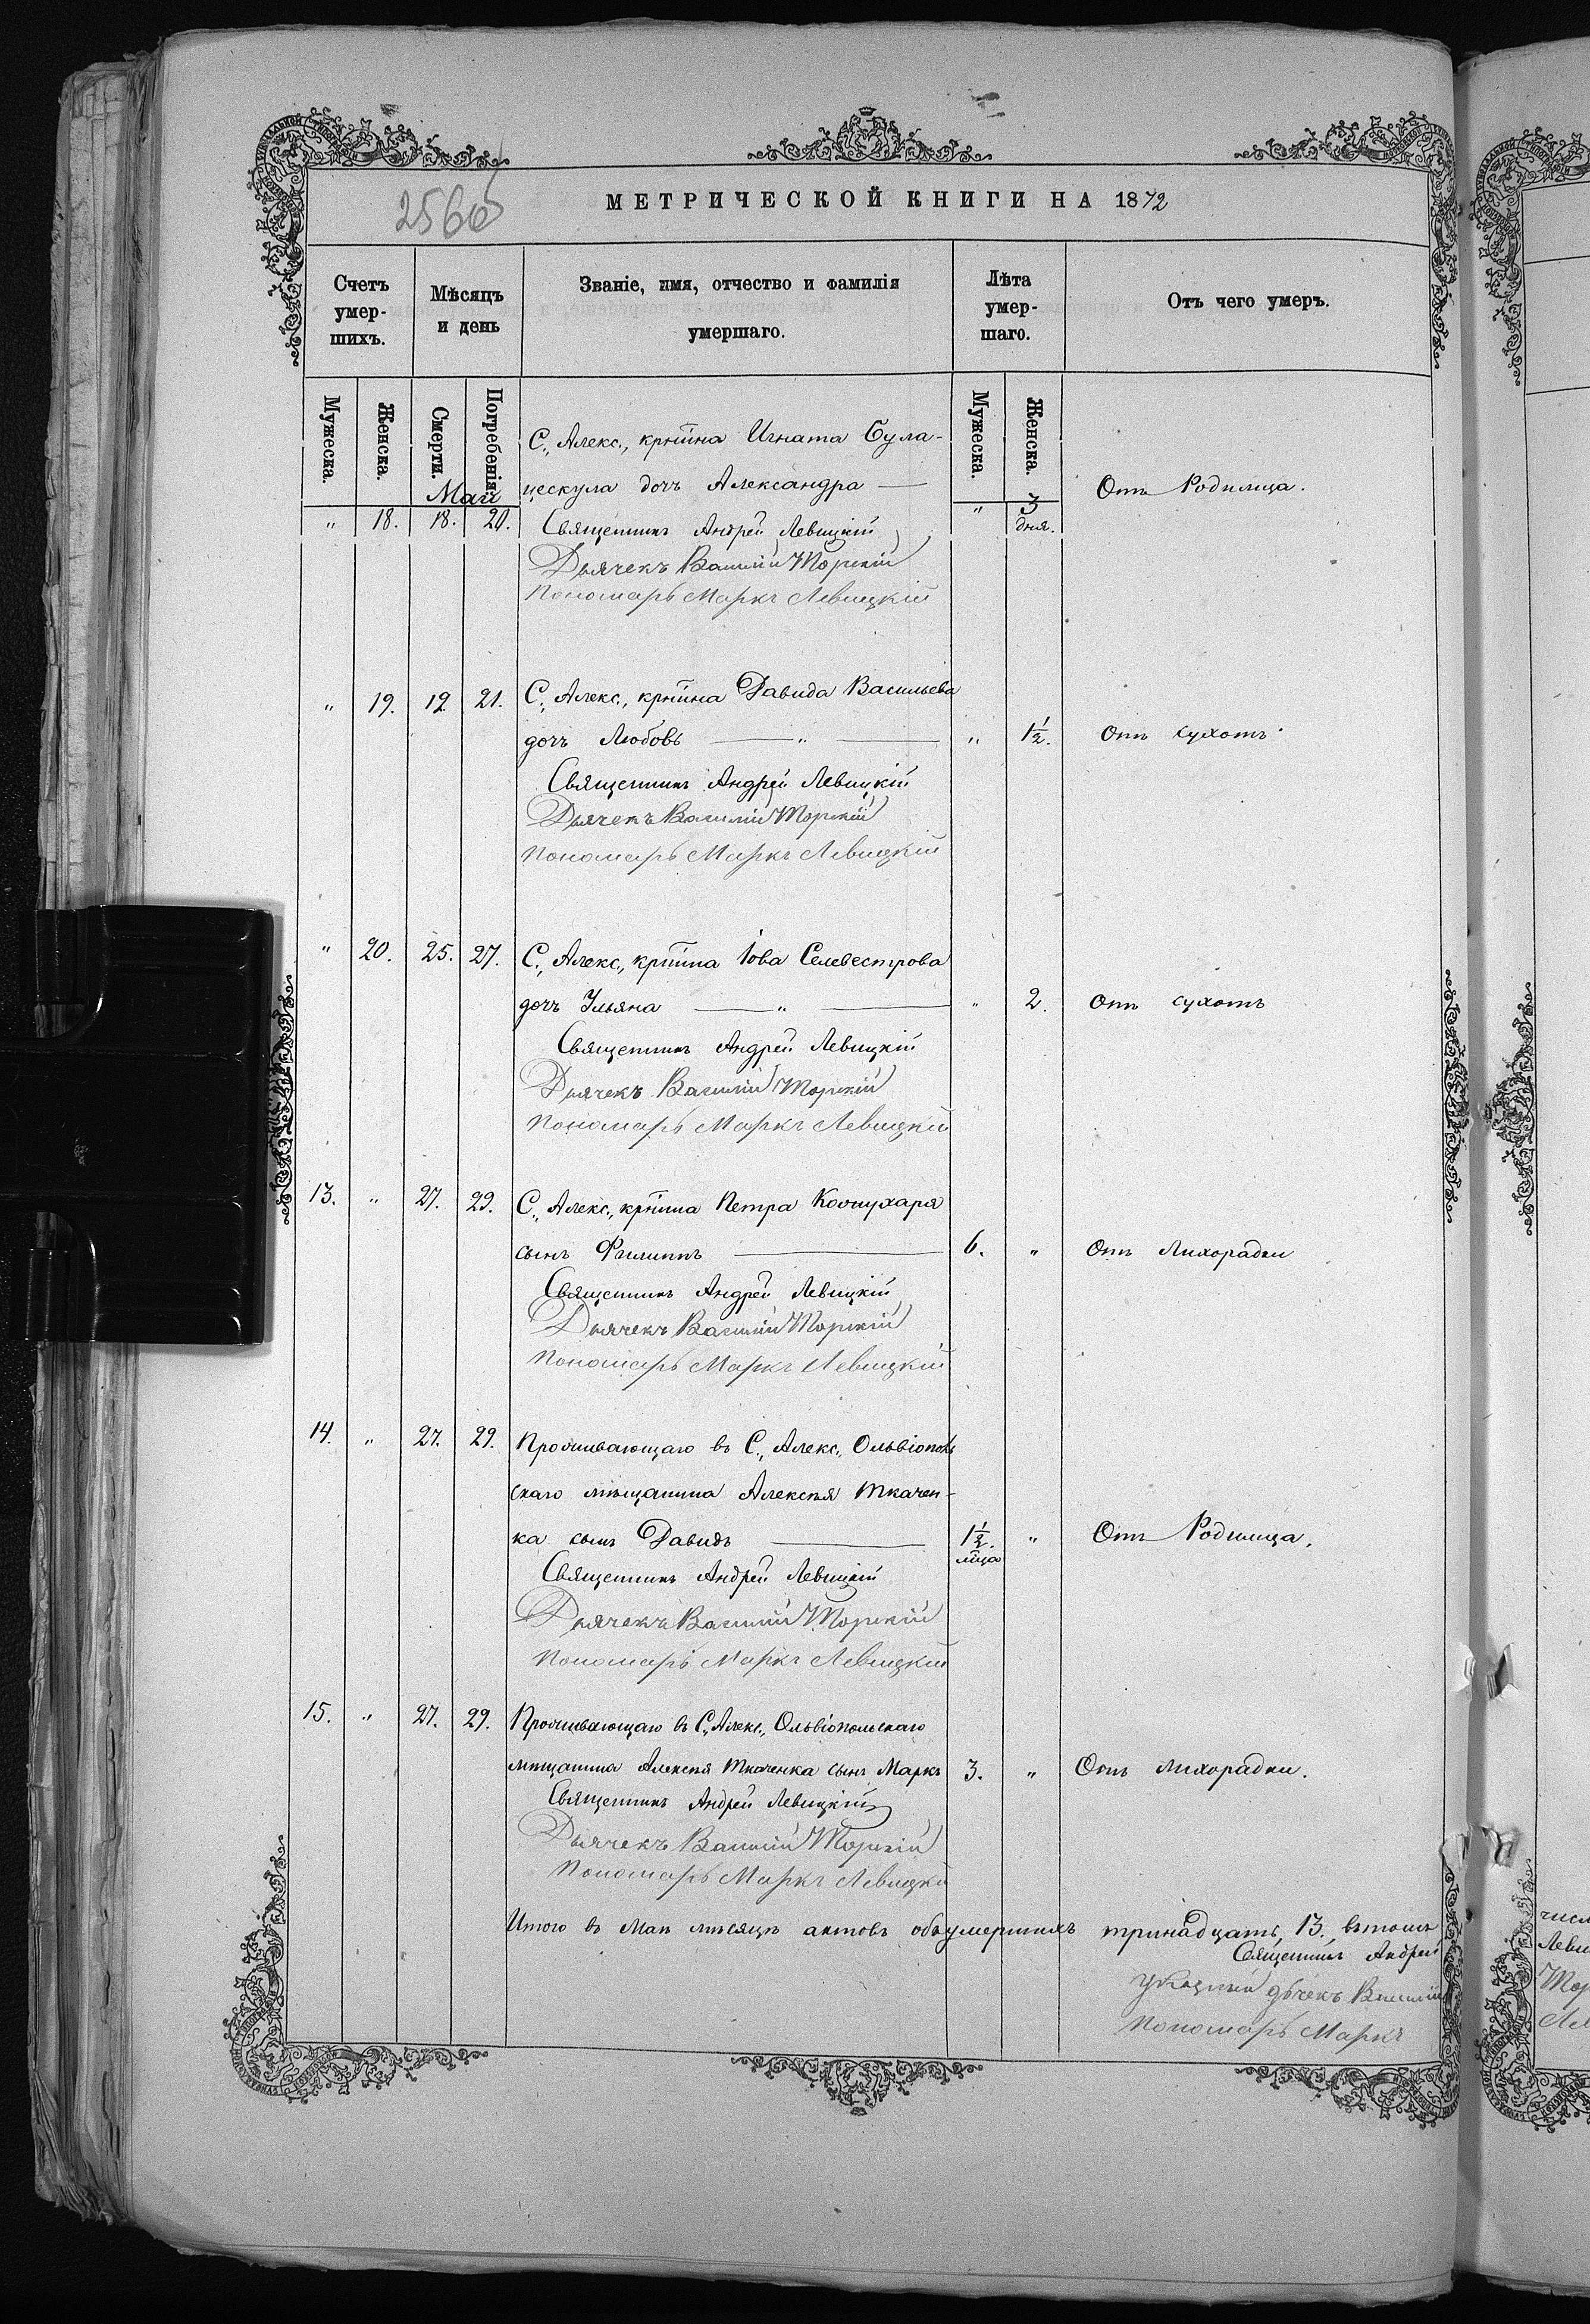 2566
МЕТРИЧЕСКОЙ КНИГИ НА 1872
Счетъ умер-шихъ.
Мѣсяцъ и день
Званіе, имя, отчество и фамилія умершаго.
Лѣта умер-шаго.
Отъ чего умеръ.
Мужеска. Женска. Смерти. Погребенія. Мужеска. Женска.
Май
С., Алекс., кр͠тіина Игната Була-
цескула дочъ Александра — Отъ Родимца.
" 18. 18. 20. " 3 дня.
Священникъ Андрей Левицкій
Дьячекъ Василій Торскій
Пономарь Маркъ Левицкій
" 19. 19. 21. С., Алекс., кр͠тіина Давида Васильева
дочъ Любовь — " — " 1½. Отъ сухотъ
Священникъ Андрей Левицкій
Дьячекъ Василій Торскій
Пономарь Маркъ Левицкій
" 20. 25. 27. С., Алекс., кр͠тіина Іова Селевестрова
дочъ Ульяна — " — " 2. Отъ сухотъ
Священникъ Андрей Левицкій
Дьячекъ Василій Торскій
Пономарь Маркъ Левицкій
13. " 27. 29. С., Алекс., кр͠тіина Петра
сынъ Филиппъ — 6. " Отъ Лихорадки
Священникъ Андрей Левицкій
Дьячекъ Василій Торскій
Пономарь Маркъ Левицкій
14. " 27. 29. Проживающаго въ С., Алекс., Ольвіополь
скаго мѣщанина Алексѣя Ткачен-
ка сынъ Давидъ — 1½. мца " Отъ Родимца.
Священникъ Андрей Левицкій
Дьячекъ Василій Торскій
Пономарь Маркъ Левицкій
15. " 27. 29. Проживающаго въ С., Алекс., Ольвіопольскаго
мѣщанина Алексѣя Ткаченка сынъ Маркъ 3. " Отъ лихорадки.
Священникъ Андрей Левицкій
Дьячекъ Василій Торскій
Пономарь Маркъ Левицкі
Итого въ Маѣ мѣсяцѣ актовъ объ умершихъ тринадцать, 13. въ томъ
Священникъ Андрей
Указный дьчекъ Василій
Пономарь Маркъ
числ
Леви
Тор